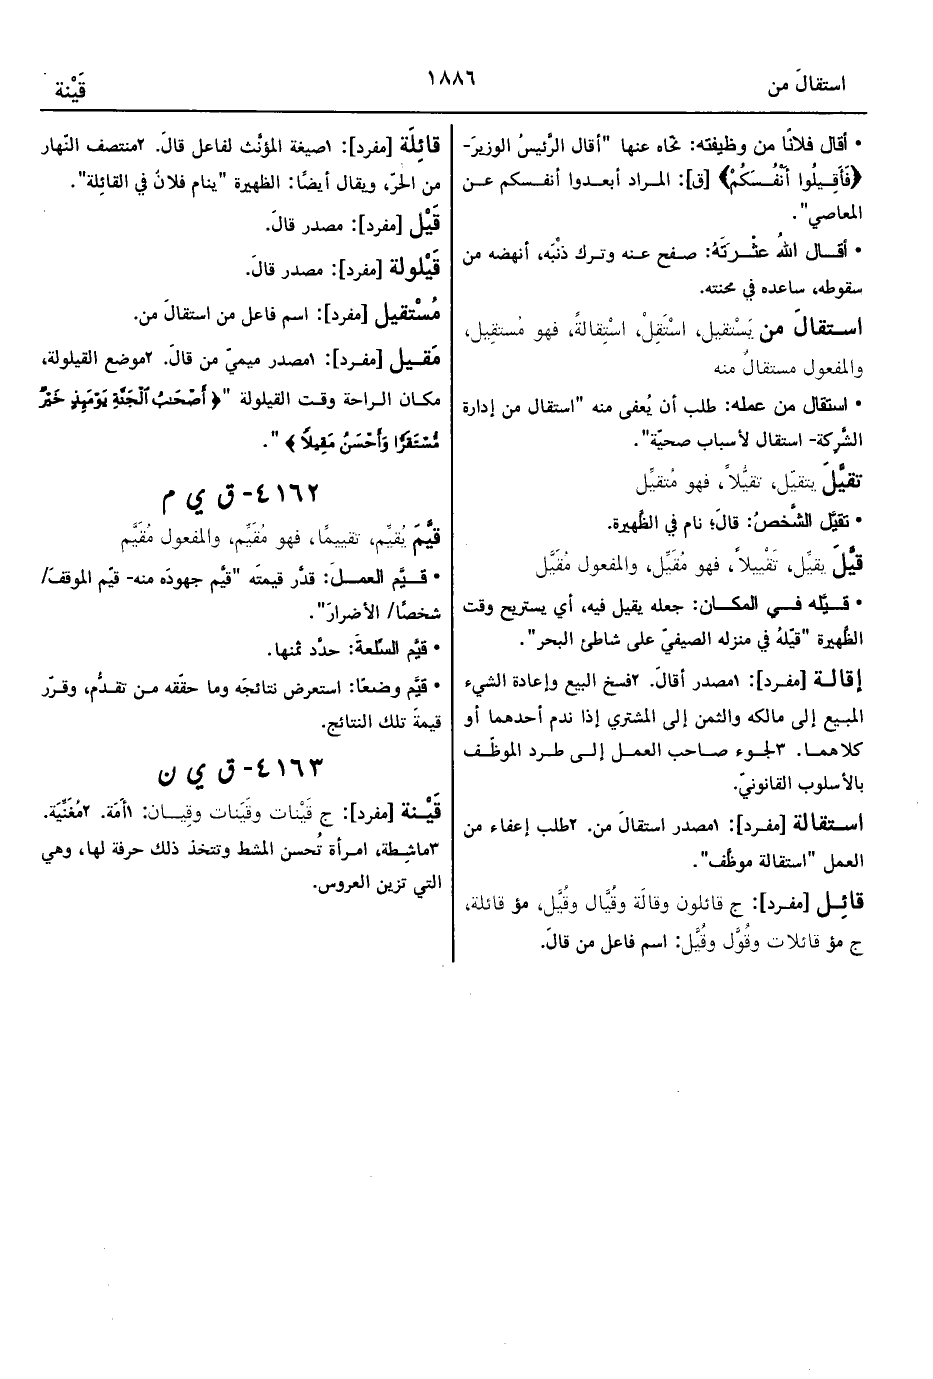 استقالَ من
١٨٨٦
قَيْنة
• أقال فلانًا من وظيفته: نحَّاه عنها "أقال الرَّئيسُ الوزيرَ-
﴿فَأَقِيلُوا أَنْفُسَكُمْ﴾ [ق]: المراد أبعدوا أنفسكم عن
المعاصي".
• أقال اللهُ عثْرتَهُ: صفح عنه وترك ذنْبَه، أنهضه من
سقوطه، ساعده في محنته.
استقالَ من يَسْتقيل، اسْتَقِلْ، اسْتِقالةً، فهو مُستقِيل،
والمفعول مستقالٌ منه
• استقال من عمله: طلب أن يُعفى منه "استقال من إدارة
الشَّركة- استقال لأسباب صحيّة".
تقيَّلَ يتقيّل، تقيُّلاً، فهو مُتقيِّل
• تقيَّل الشَّخصُ: قالَ؛ نام في الظَّهيرة.
قيَّلَ يقيِّل، تَقْييلاً، فهو مُقَيِّل، والمفعول مُقَيَّل
• قيَّله في المكان: جعله يقيل فيه، أي يستريح وقت
الظَّهيرة "قيَّلهُ في منزله الصيفيّ على شاطئ البحر".
إقالة [مفرد]: ١مصدر أقالَ. ٢فسخ البيع وإعادة الشيء
المبيع إلى مالكه والثمن إلى المشتري إذا ندم أحدهما أو
كلاهما. ٣لجوء صاحب العمل إلى طرد الموظّف
بالأسلوب القانونيّ.
استقالة [مفرد]: ١مصدر استقالَ من. ٢طلب إعفاء من
العمل "استقالة موظَّف".
قائِل [مفرد]: ج قائلون وقالَة وقُيَّال وقُيَّل، مؤ قائلة،
ج مؤ قائلات وقُوَّل وقُيَّل: اسم فاعل من قالَ.
قائِلَة [مفرد]: ١صيغة المؤنَّث لفاعل قالَ. ٢منتصف النّهار
من الحَرّ، ويقال أيضًا: الظهيرة "ينام فلانٌ في القائلة".
قَيْل [مفرد]: مصدر قالَ.
قَيْلولة [مفرد]: مصدر قالَ.
مُسْتقيل [مفرد]: اسم فاعل من استقالَ من.
مَقيل [مفرد]: ١مصدر ميميّ من قالَ. ٢موضع القيلولة،
مكان الراحة وقت القيلولة "﴿أَصْحَٰبُ ٱلْجَنَّةِ يَوْمَئِذٍ خَيْرٌ
مُّسْتَقَرًّا وَأَحْسَنُ مَقِيلاً﴾".
٤١٦٢- ق ي م
قيَّمَ يُقيِّم، تقييمًا، فهو مُقَيِّم، والمفعول مُقَيَّم
• قيَّم العملَ: قدَّر قيمتَه "قيَّم جهودَه منه- قيّم الموقفَ/
شخصًا/ الأضرارَ".
• قيَّم السِّلعةَ: حدَّد ثمنها.
• قيَّم وضعًا: استعرض نتائجَه وما حقّقه من تقدُّم، وقرّر
قيمةَ تلك النتائج.
٤١٦٣- ق ي ن
قَيْنة [مفرد]: ج قَيْنات وقَيَنات وقِيان: ١أَمَة. ٢مُغَنِّيَة.
٣ماشِطة، امرأة تُحسن المشط وتتخذ ذلك حرفة لها، وهي
التي تزين العروس.